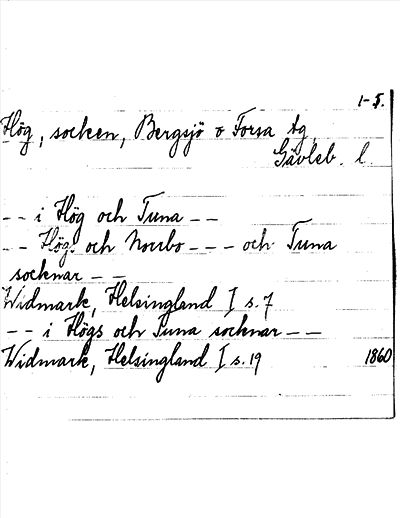 1-5.
Hög, socken, Bergsjö o Forsa tg
Gävleb. l.
-- i Hög och Tuna --
-- Högs och Norrbo --- och Tuna
socknar --
Widmark, Helsingland I s. 7
-- i Högs och Tuna socknar --
Widmark, Helsingland I s. 19 1860